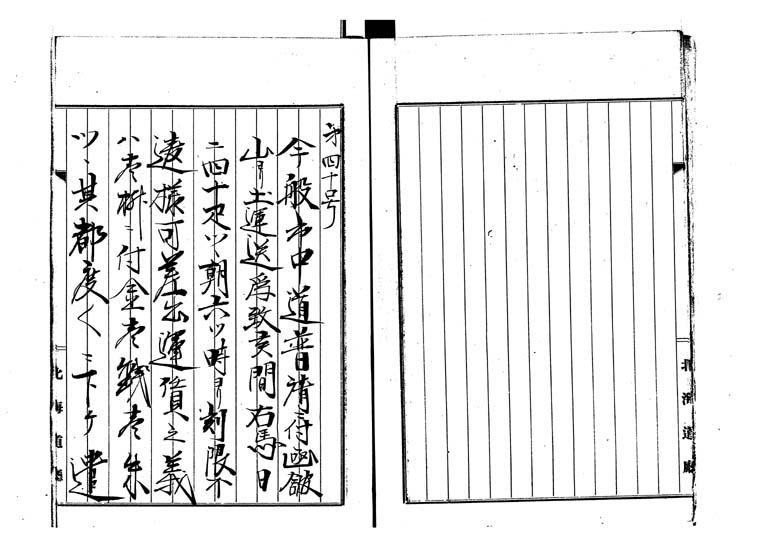 第四十号
今般市中道普請ニ付函館
山ゟ土運送為致候間右馬日
ニ四十疋ツヽ朝六ツ時ゟ刻限不
違様可差出運賃之義
ハ壱桝ニ付金壱錢壱朱
ツヽ其都度々々ニ下ケ遣
北海道廳
北海道廳